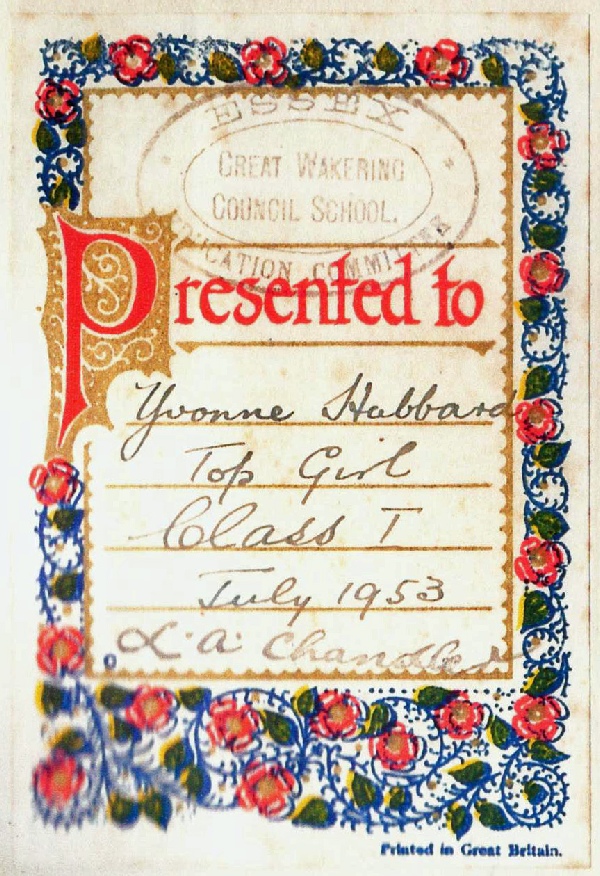 ESSEX
GREAT WAKERING
COUNCIL SCHOOL.
EDUCATION COMMITTEE
Presented to
Yvonne Hubbard
Top Girl
Class I
July 1953
L. A. Chandler
Printed in Great Britain.